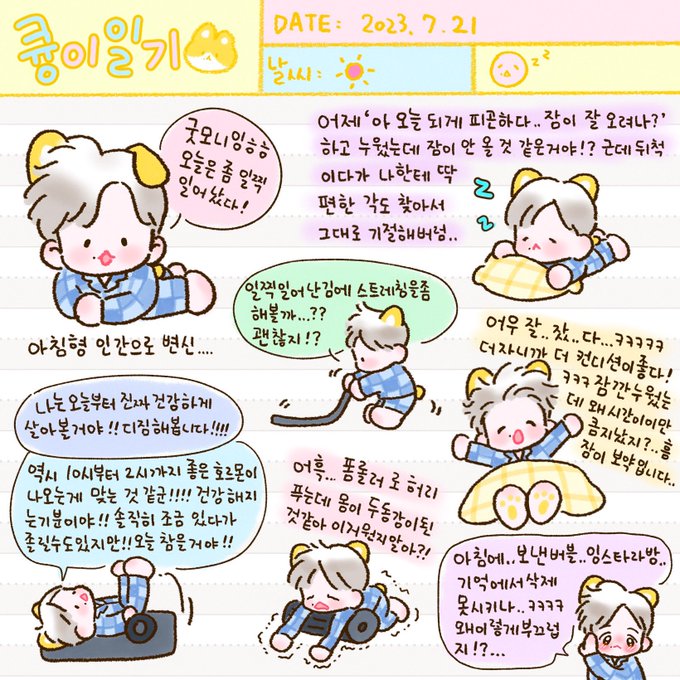 큥이일기
DATE: 2023. 7. 21
날씨:
z z
굿모니잉승승
오늘은 좀 일찍
일어났다!
아침형 인간으로 변신....
어제 '아 오늘 되게 피곤하다.. 잠이 잘 오려나?'
하고 누웠는데 잠이 안 올 것 같은거야!? 근데 뒤척
이다가 나한테 딱
편한 각도 찾아서
그대로 기절해버림..
z
z
일찍일어난김에 스트레칭을좀
해볼까...??
괜찮지!?
어우 잘..잤..다...ㅋㅋㅋㅋㅋ
더자니까 더 컨디션이좋다!
ㅋㅋㅋ 잠깐누웠는
데 왜시간이이만
큼지났지?..흠
잠이 보약입니다..
나는오늘부터 진짜 건강하게
살아볼거야!! 디짐해봅니다!!!!
역시 10시부터 2시까지 좋은 호르몬이
나오는게 맞는 것 같군!!!! 건강해지
는기분이야!! 솔직히 조금 있다가
졸릴수도있지만!! 오늘 참을거야!!
어흑... 폼롤러로 허리
푸는데 몸이 두동강이 된
것같아 이거뭔지알아?!
아침에.. 보낸버블.. 잉스타라방..
기억에서삭제
못시키나..ㅋㅋㅋㅋ
왜이렇게부끄럽
지!?...